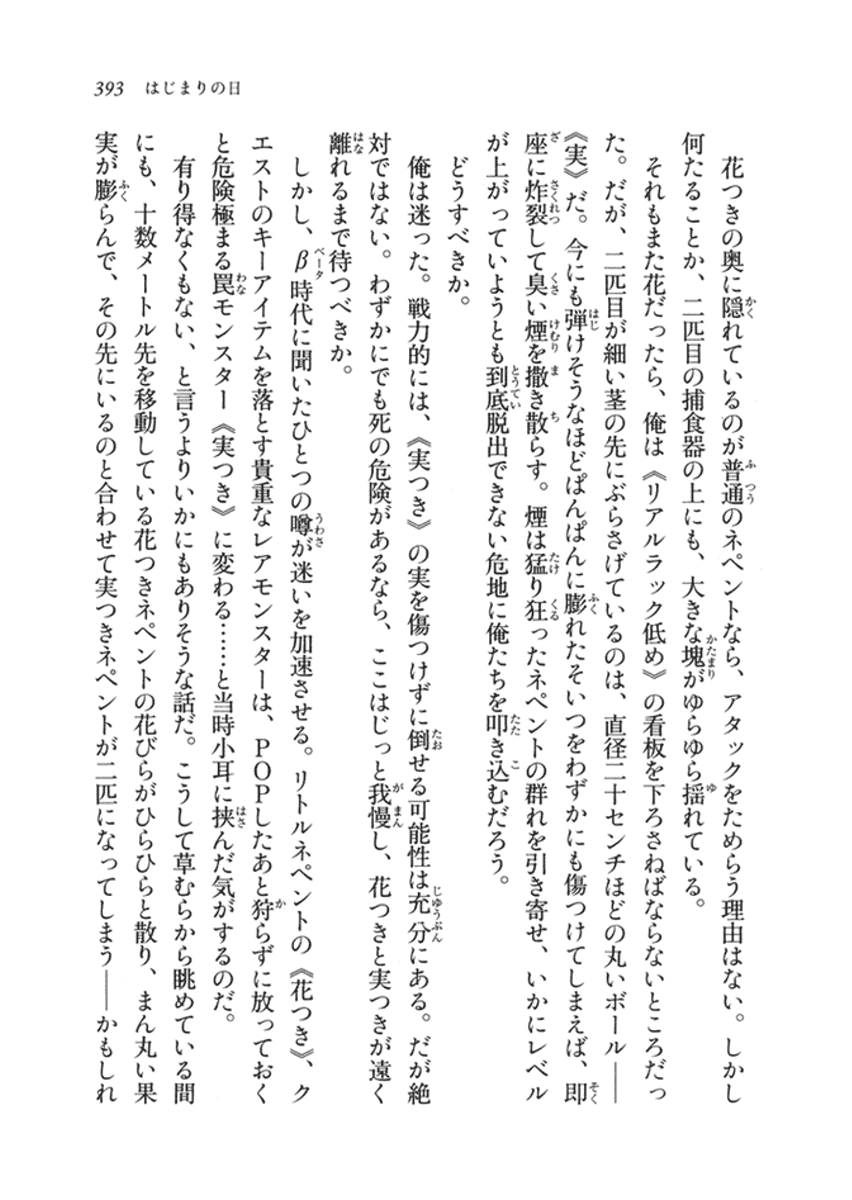 393　はじまりの日
　花つきの奥に隠れているのが普通のネペントなら、アタックをためらう理由はない。しかし
何たることか、二匹目の捕食器の上にも、大きな塊がゆらゆら揺れている。
　それもまた花だったら、俺は《リアルラック低め》の看板を下ろさねばならないところだっ
た。だが、二匹目が細い茎の先にぶらさげているのは、直径二十センチほどの丸いボール――
《実》だ。今にも弾けそうなほどぱんぱんに膨れたそいつをわずかにも傷つけてしまえば、即
座に炸裂して臭い煙を撒き散らす。煙は猛り狂ったネペントの群れを引き寄せ、いかにレベル
が上がっていようとも到底脱出できない危地に俺たちを叩き込むだろう。
　どうすべきか。
　俺は迷った。戦力的には、《実つき》の実を傷つけずに倒せる可能性は充分にある。だが絶
対ではない。わずかにでも死の危険があるなら、ここはじっと我慢し、花つきと実つきが遠く
離れるまで待つべきか。
　しかし、β時代に聞いたひとつの噂が迷いを加速させる。リトルネペントの《花つき》、ク
エストのキーアイテムを落とす貴重なレアモンスターは、POPしたあと狩らずに放っておく
と危険極まる罠モンスター《実つき》に変わる……と当時小耳に挟んだ気がするのだ。
　有り得なくもない、と言うよりいかにもありそうな話だ。こうして草むらから眺めている間
にも、十数メートル先を移動している花つきネペントの花びらがひらひらと散り、まん丸い果
実が膨らんで、その先にいるのと合わせて実つきネペントが二匹になってしまう――かもしれ